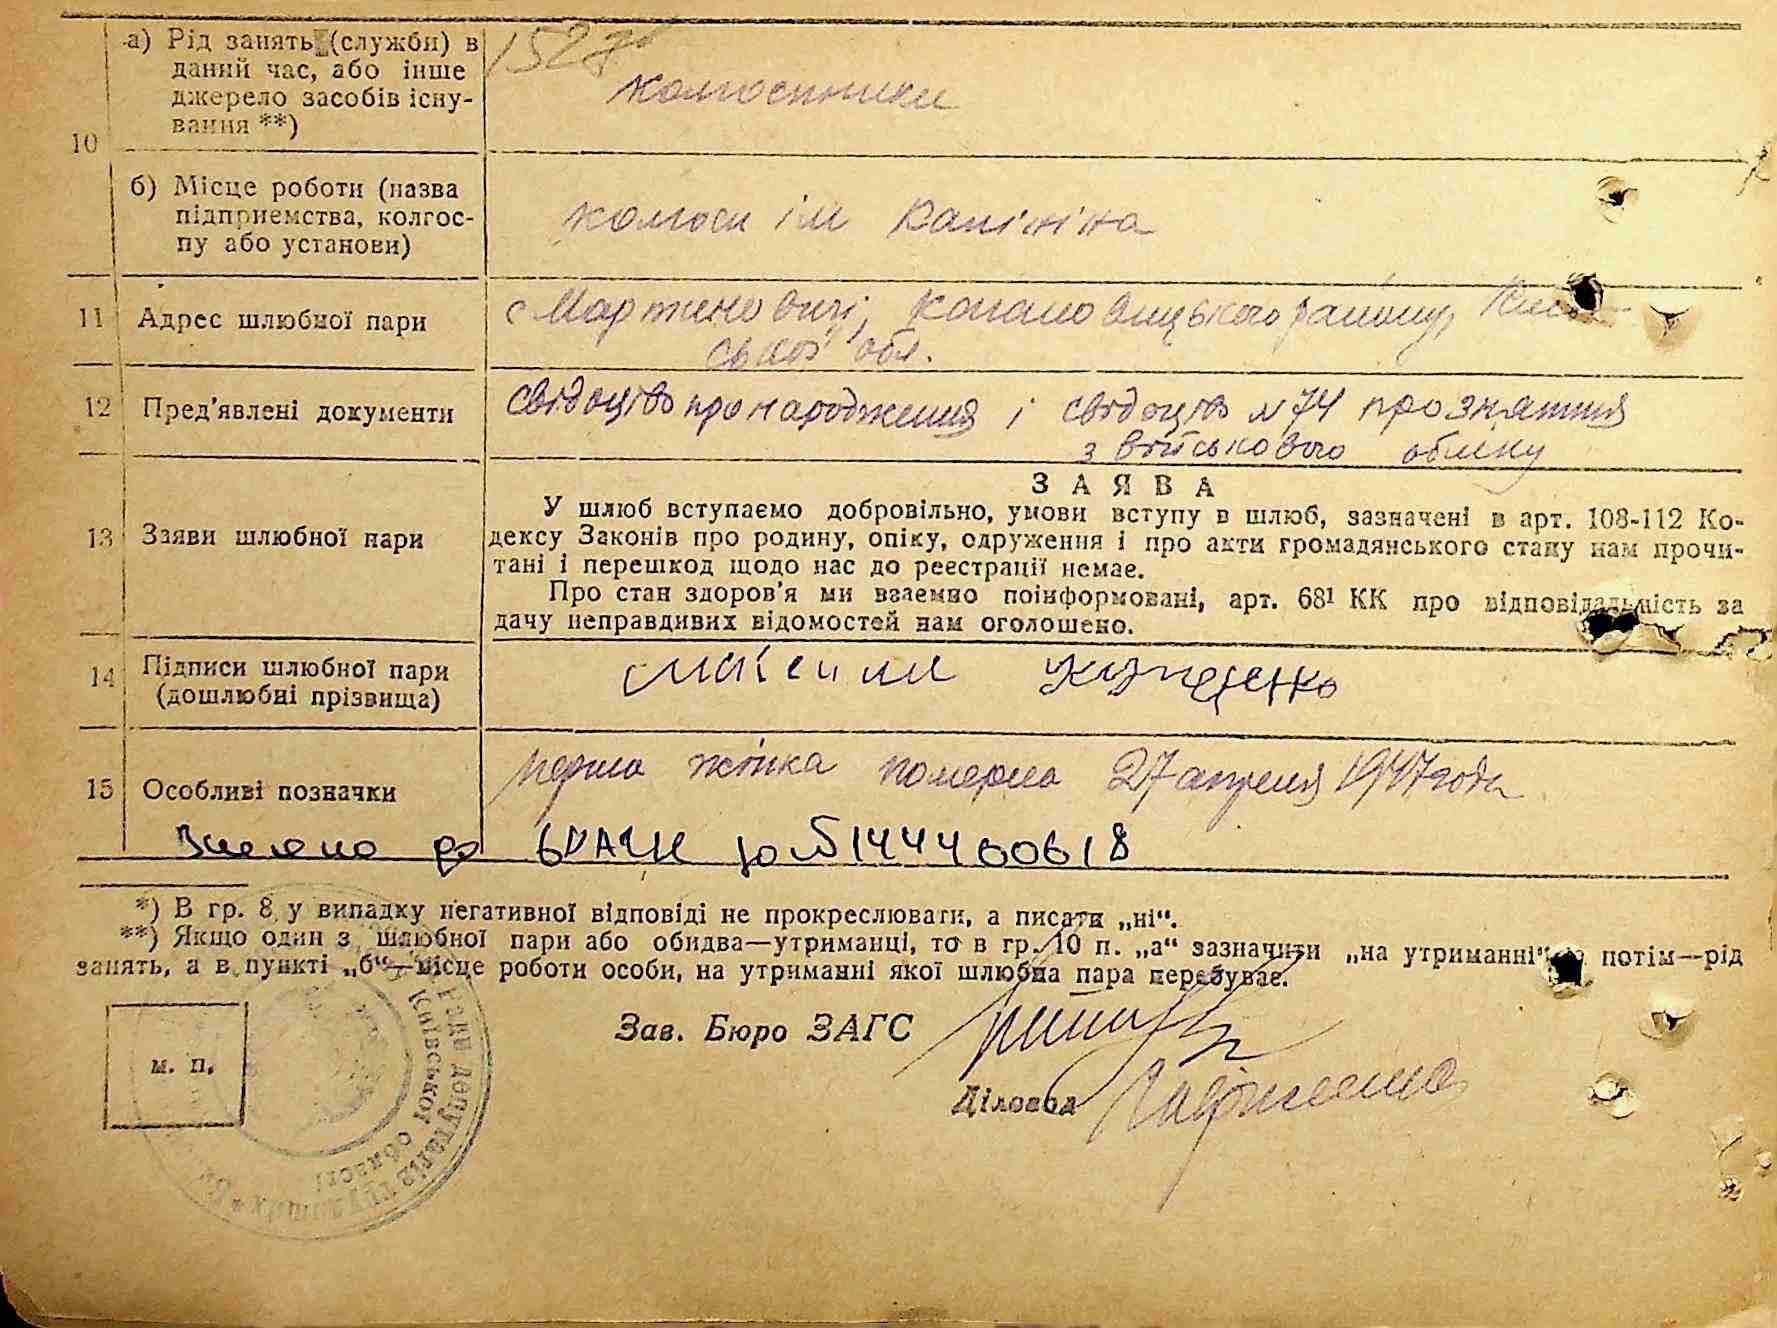 1527
а) Рід занять (служби) в
даний час, або інше
джерело засобів існу-
вання **)
колгоспники
10
б) Місце роботи (назва
підприємства, колгос-
пу або установи)
колгосп ім Калініна
11 Адрес шлюбної пари
с Мартиновичі, Кагановицького району, Киів-
ської обл.
12 Пред'явлені документи
свідоцтво про народження і свідоцтво №74 про зняття
з військового обліку
13 Заяви шлюбної пари
ЗАЯВА
У шлюб вступаємо добровільно, умови вступу в шлюб, зазначені в арт. 108-112 Ко-
дексу Законів про родину, опіку, одруження і про акти громадянського стану нам прочи-
тані і перешкод щодо нас до реєстрації немає.
Про стан здоров'я ми взаємно поінформовані, арт. 68¹ КК про відповідальність за
дачу неправдивих відомостей нам оголошено.
14 Підписи шлюбної пари
(дошлюбні прізвища)
15 Особливі позначки
перша жінка померла 27 апреля 1947 года
Внесено до ДРАЦС за №1444600618
*) В гр. 8 у випадку негативної відповіді не прокреслювати, а писати „ні“.
**) Якщо один з шлюбної пари або обидва—утриманці, то в гр. 10 п. „а“ зазначити „на утриманні“, а потім—рід
занять, а в пункті „б“—місце роботи особи, на утриманні якої шлюбна пара перебуває.
м. п.
Зав. Бюро ЗАГС
Діловод
Ради депутатів трудящих
Київської області